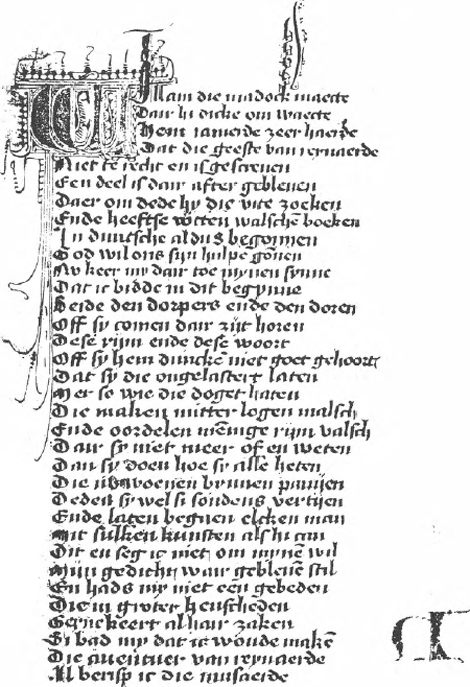 Willam die madock maecte
Dair hi dicke om waecte
Hem iamerde zeer haerde
Dat die geeste van reynaerde
Niet te recht en is gescreuen
Een deel is dair after gebleuen
Daer om dede hy die vite zoeken
Ende heeftse wtten walschē boeken
In duutsche aldus begonnen
God wil ons sijn hulpe gōnen
Nv keer my dair toe mynen synne
Dat ic bidde in dit begynne
Beide den dorpers ende den doren
Off sy comen dair zijt horen
Dese rijm ende dese woort
Off sy hem dunckē niet goet gehoort
Dat sy die ongelastert laten
Mer so wie die doget haten
Die maken mitter logen malsch
Ende oordelen mēnige rijm valsch
Dair sy niet meer of en weten
Dan sy doen hoe sy alle heten
Die nv woenen bynnen parijen
Deden sy wel si soudens vertijen
Ende laten begaen elcken man
Mit sulken kunsten als hi can
Dit en seg ic niet om mynē wil
Mijn gedicht wair gebleuē stil
En hads my niet een gebeden
Die in groter heuscheden
Gerne keert al hair zaken
Si bad my dat ic woude makē
Die auentuer van reynaerde
Al berisp ic die musaerde